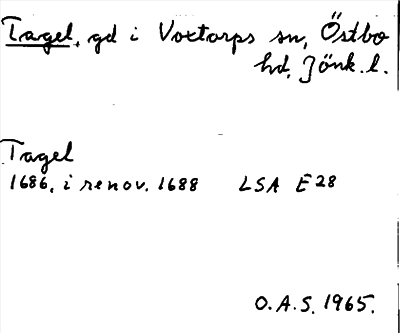 Tagel, gd i Voxtorps sn, Östbo
hd, Jönk. l.
Tagel
1686, i renov. 1688 LSA E 28
O.A.S. 1965.